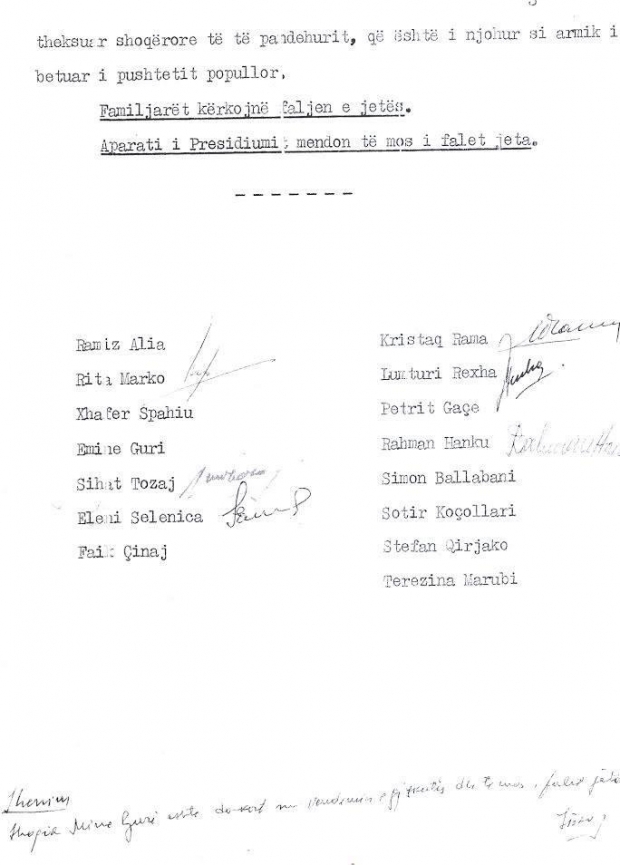 theksuar shoqërore të të pandehurit, që është i njohur si armik i
betuar i pushtetit popullor.
Familjarët kërkojnë faljen e jetës.
Aparati i Presidiumit mendon të mos i falet jeta.
Ramiz Alia
Rita Marko
Xhafer Spahiu
Emine Guri
Sihat Tozaj
Eleni Selenica
Faik Çinaj
Kristaq Rama
Lumturi Rexha
Petrit Gaçe
Rahman Hanku
Simon Ballabani
Sotir Koçollari
Stefan Qirjako
Terezina Marubi
Shënim
Shoqja Mine Guri është dakord me vendimin e gjykatës dhe të mos i falet jeta